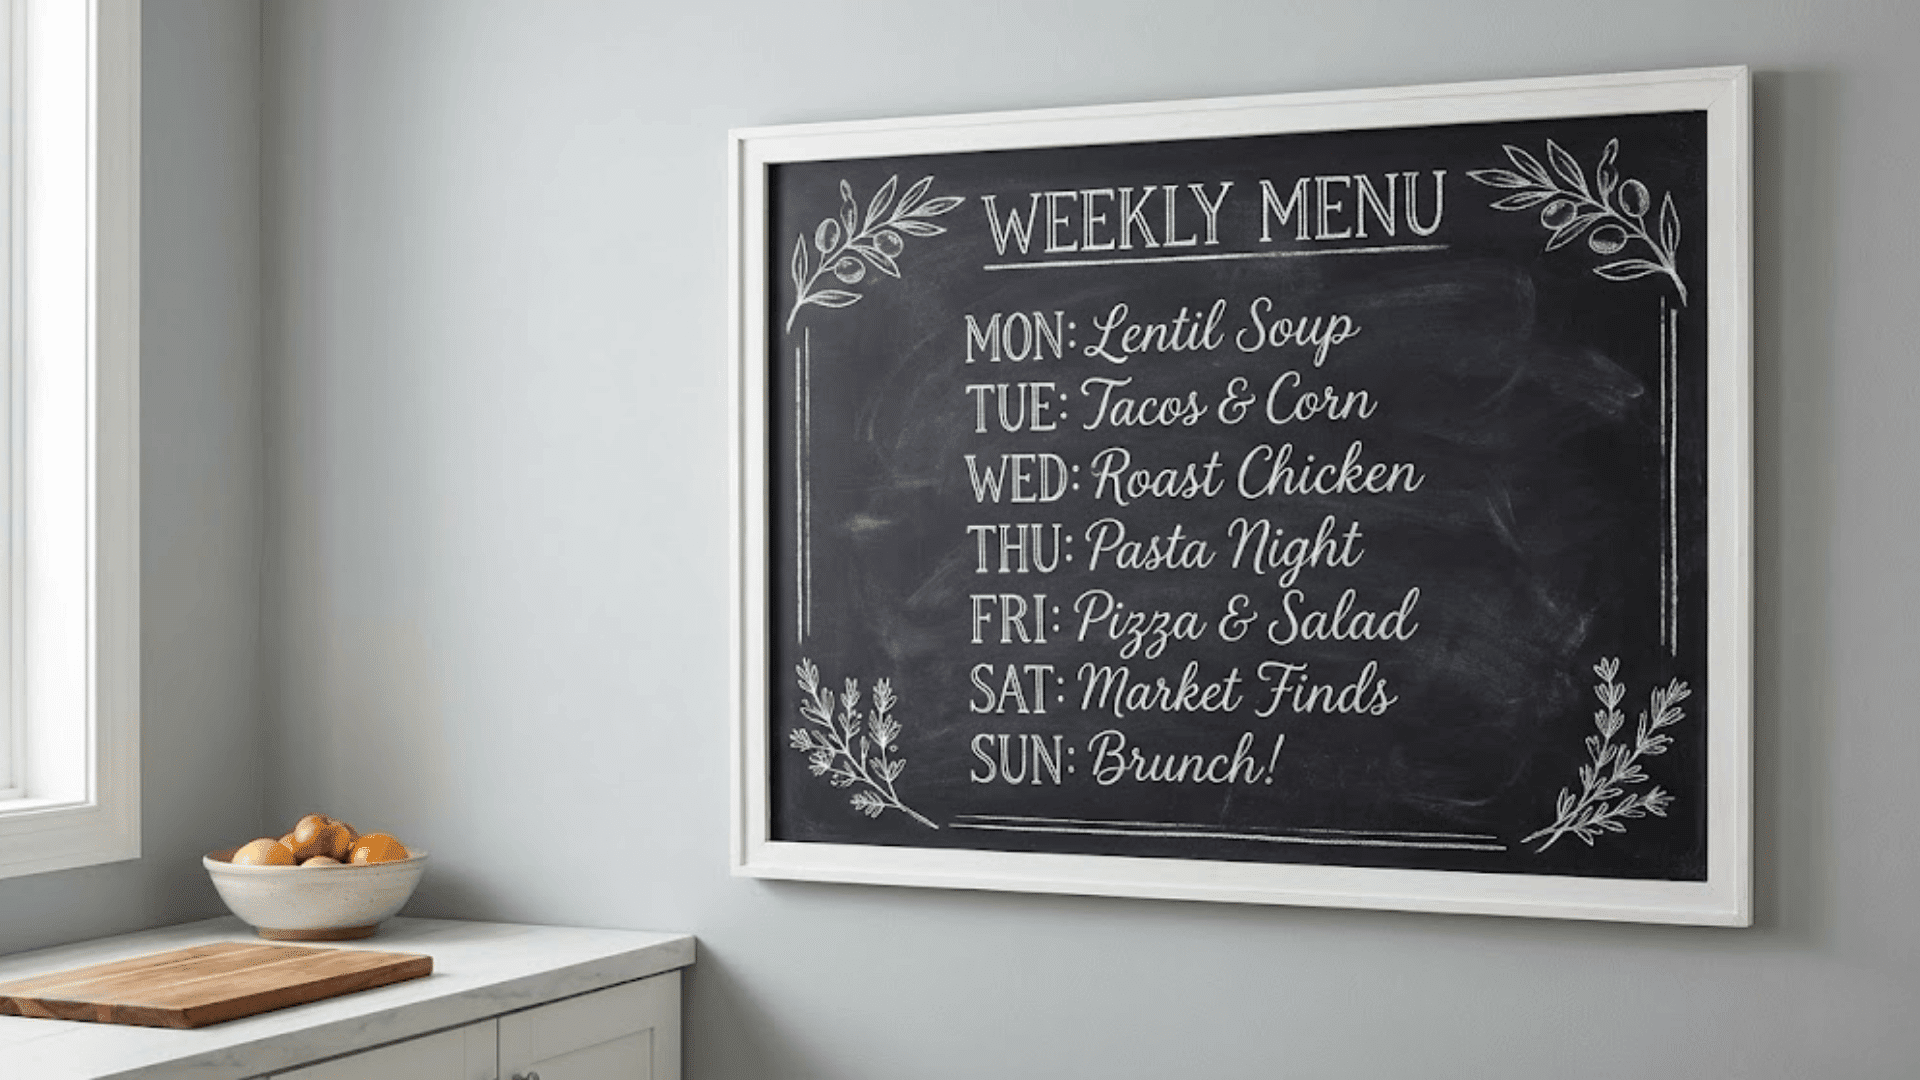 WEEKLY MENU
MON: Lentil Soup
TUE: Tacos & Corn
WED: Roast Chicken
THU: Pasta Night
FRI: Pizza & Salad
SAT: Market Finds
SUN: Brunch!